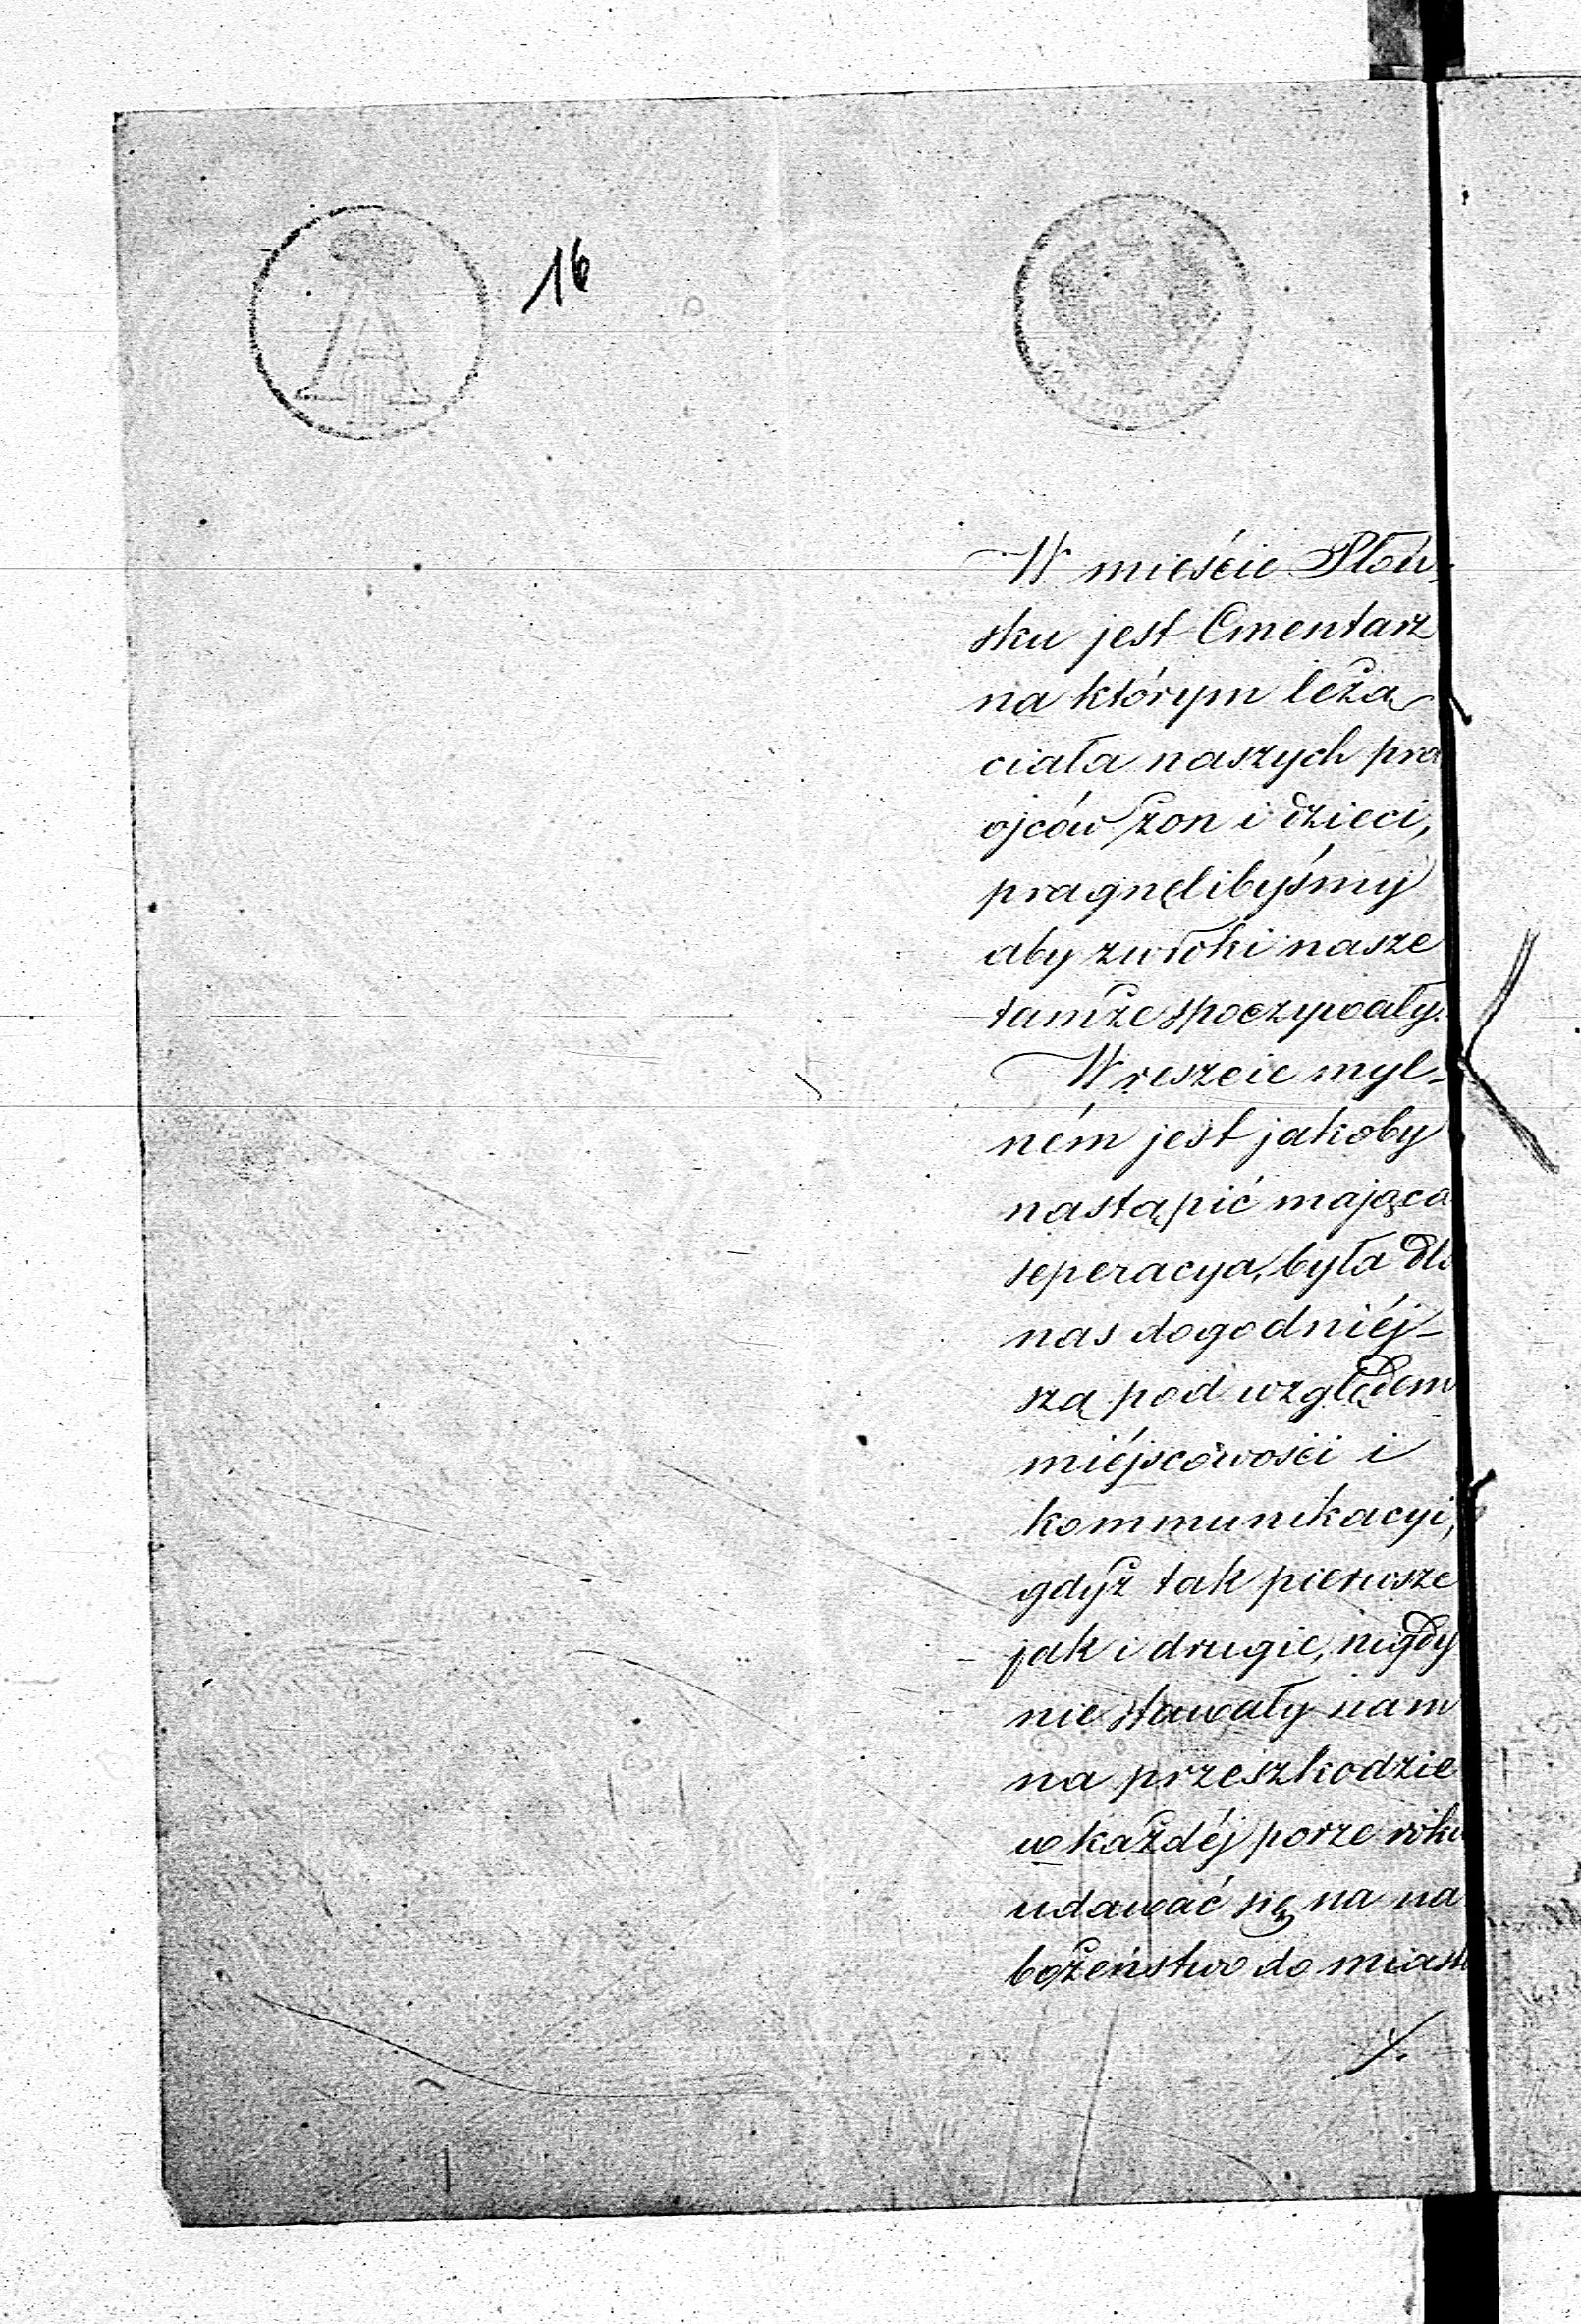 16
W mieście Płoń-
sku jest Cmentarz
na którym leżą
ciała naszych pra
ojców żon i dzieci,
pragnęlibyśmy
aby zwłoki nasze
tamże spoczywały.
Wreszcie myl-
ném jest jakoby
nastąpić mająca
seperacya, była dla
nas dogodniéj-
szą pod względem
miéjscowości i
kommunikacyi,
gdyż tak pierwsze
jak i drugie, nigdy
nie stawały nam
na przeszkodzie
w każdéj porze roku
udawać się na na
bożeństwo do miasta